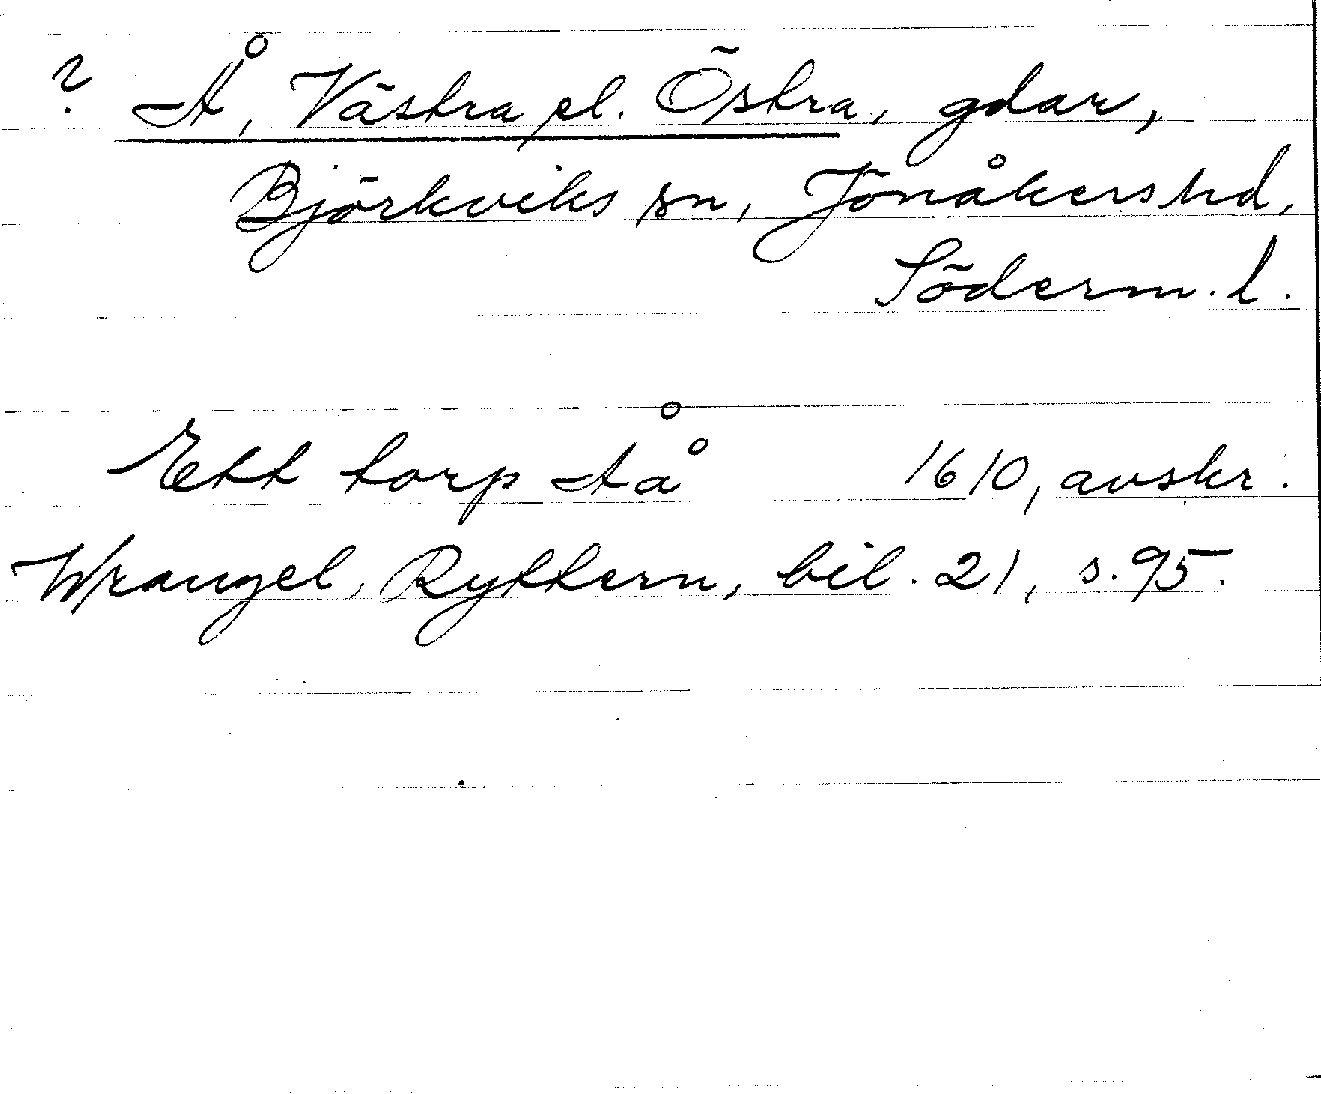 ? Å, Västra el. Östra, gdar,
Björkviks sn, Jönåkers hd,
Söderm. l.
Ett torp Åå 1610, avskr.
Wrangel, Ryttern, bil. 21, s. 95.